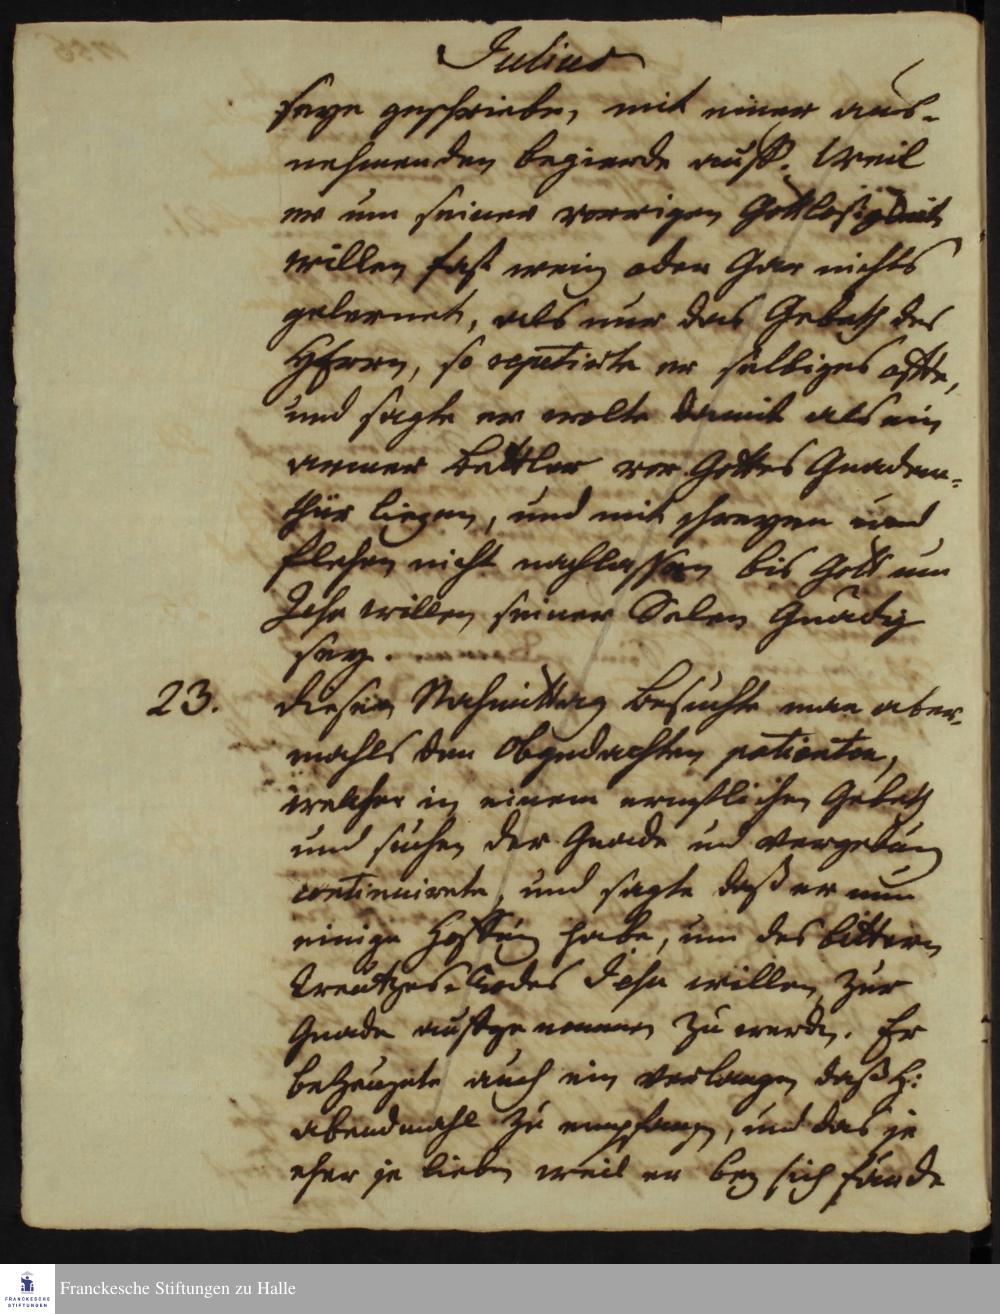 Julius
seye geschrieben, mit einer aus-
nehmenden begierde auff. Weil
er um seiner vorrigen Gottlosigkeit
willen fast wenig oder Gar nichts
gelernet, als nur das Gebeth des
HErrn, so repetirte er selbiges offte,
und sagte er wolte damit als ein
armer Bettler vor Gottes Gnaden-
thür liegen, und mit schreyen und
flehen nicht nachlassen bis Gott um
Jesu willen seiner Selen Gnädig
sey.
23. diesen Nachmittag besuchte man aber-
mahls den Obgedachten patienten,
welcher in einem ernstlichen Gebeth
und suchen der Gnade und vergebung
continuirete, und sagte daß er nun
einige Hoffnung habe, um des bittern
Creutzes-Todes Jesu willen, zur
Gnade auffgenommen zu werden. Er
bezeugete auch ein verlangen daß H:
abendmahl zu empfangen, und das je
eher je lieber weil er bey sich fände
Franckesche Stiftungen zu Halle
FRANCKESCHE
STIFTUNGEN